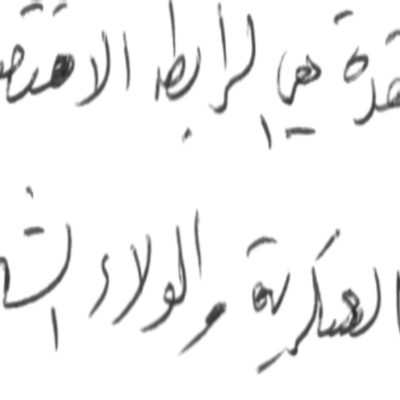 هي الرابط الاقتص
العسكرية والولاء الش